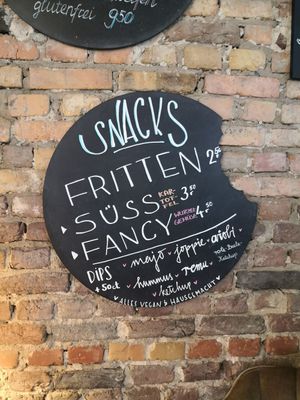 glutenfrei 9.50
SNACKS
FRITTEN 2.50
SÜSS KAR-TOF-FEL 3.50
FANCY 4.50
DIPS mayo joppie aiobi
à 50ct hummus remu rote Beete-Ketchup
ketchup
ALLES VEGAN & HAUSGEMACHT